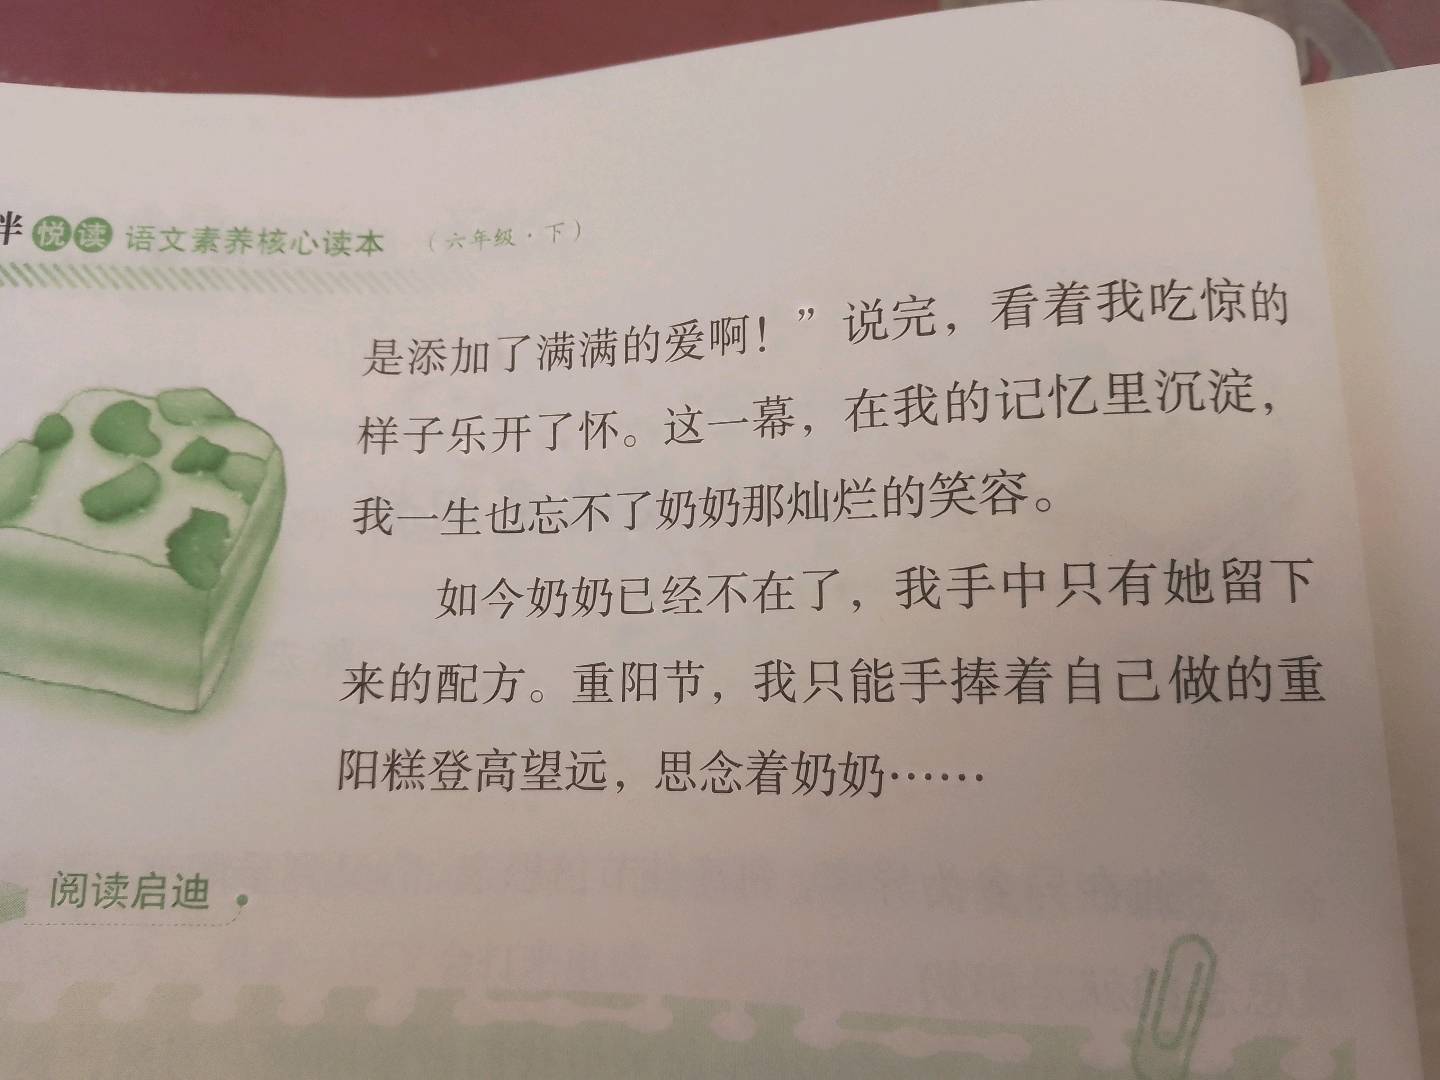 伴悦读 语文素养核心读本 （六年级·下）
是添加了满满的爱啊！”说完，看着我吃惊的
样子乐开了怀。这一幕，在我的记忆里沉淀，
我一生也忘不了奶奶那灿烂的笑容。
如今奶奶已经不在了，我手中只有她留下
来的配方。重阳节，我只能手捧着自己做的重
阳糕登高望远，思念着奶奶……
阅读启迪